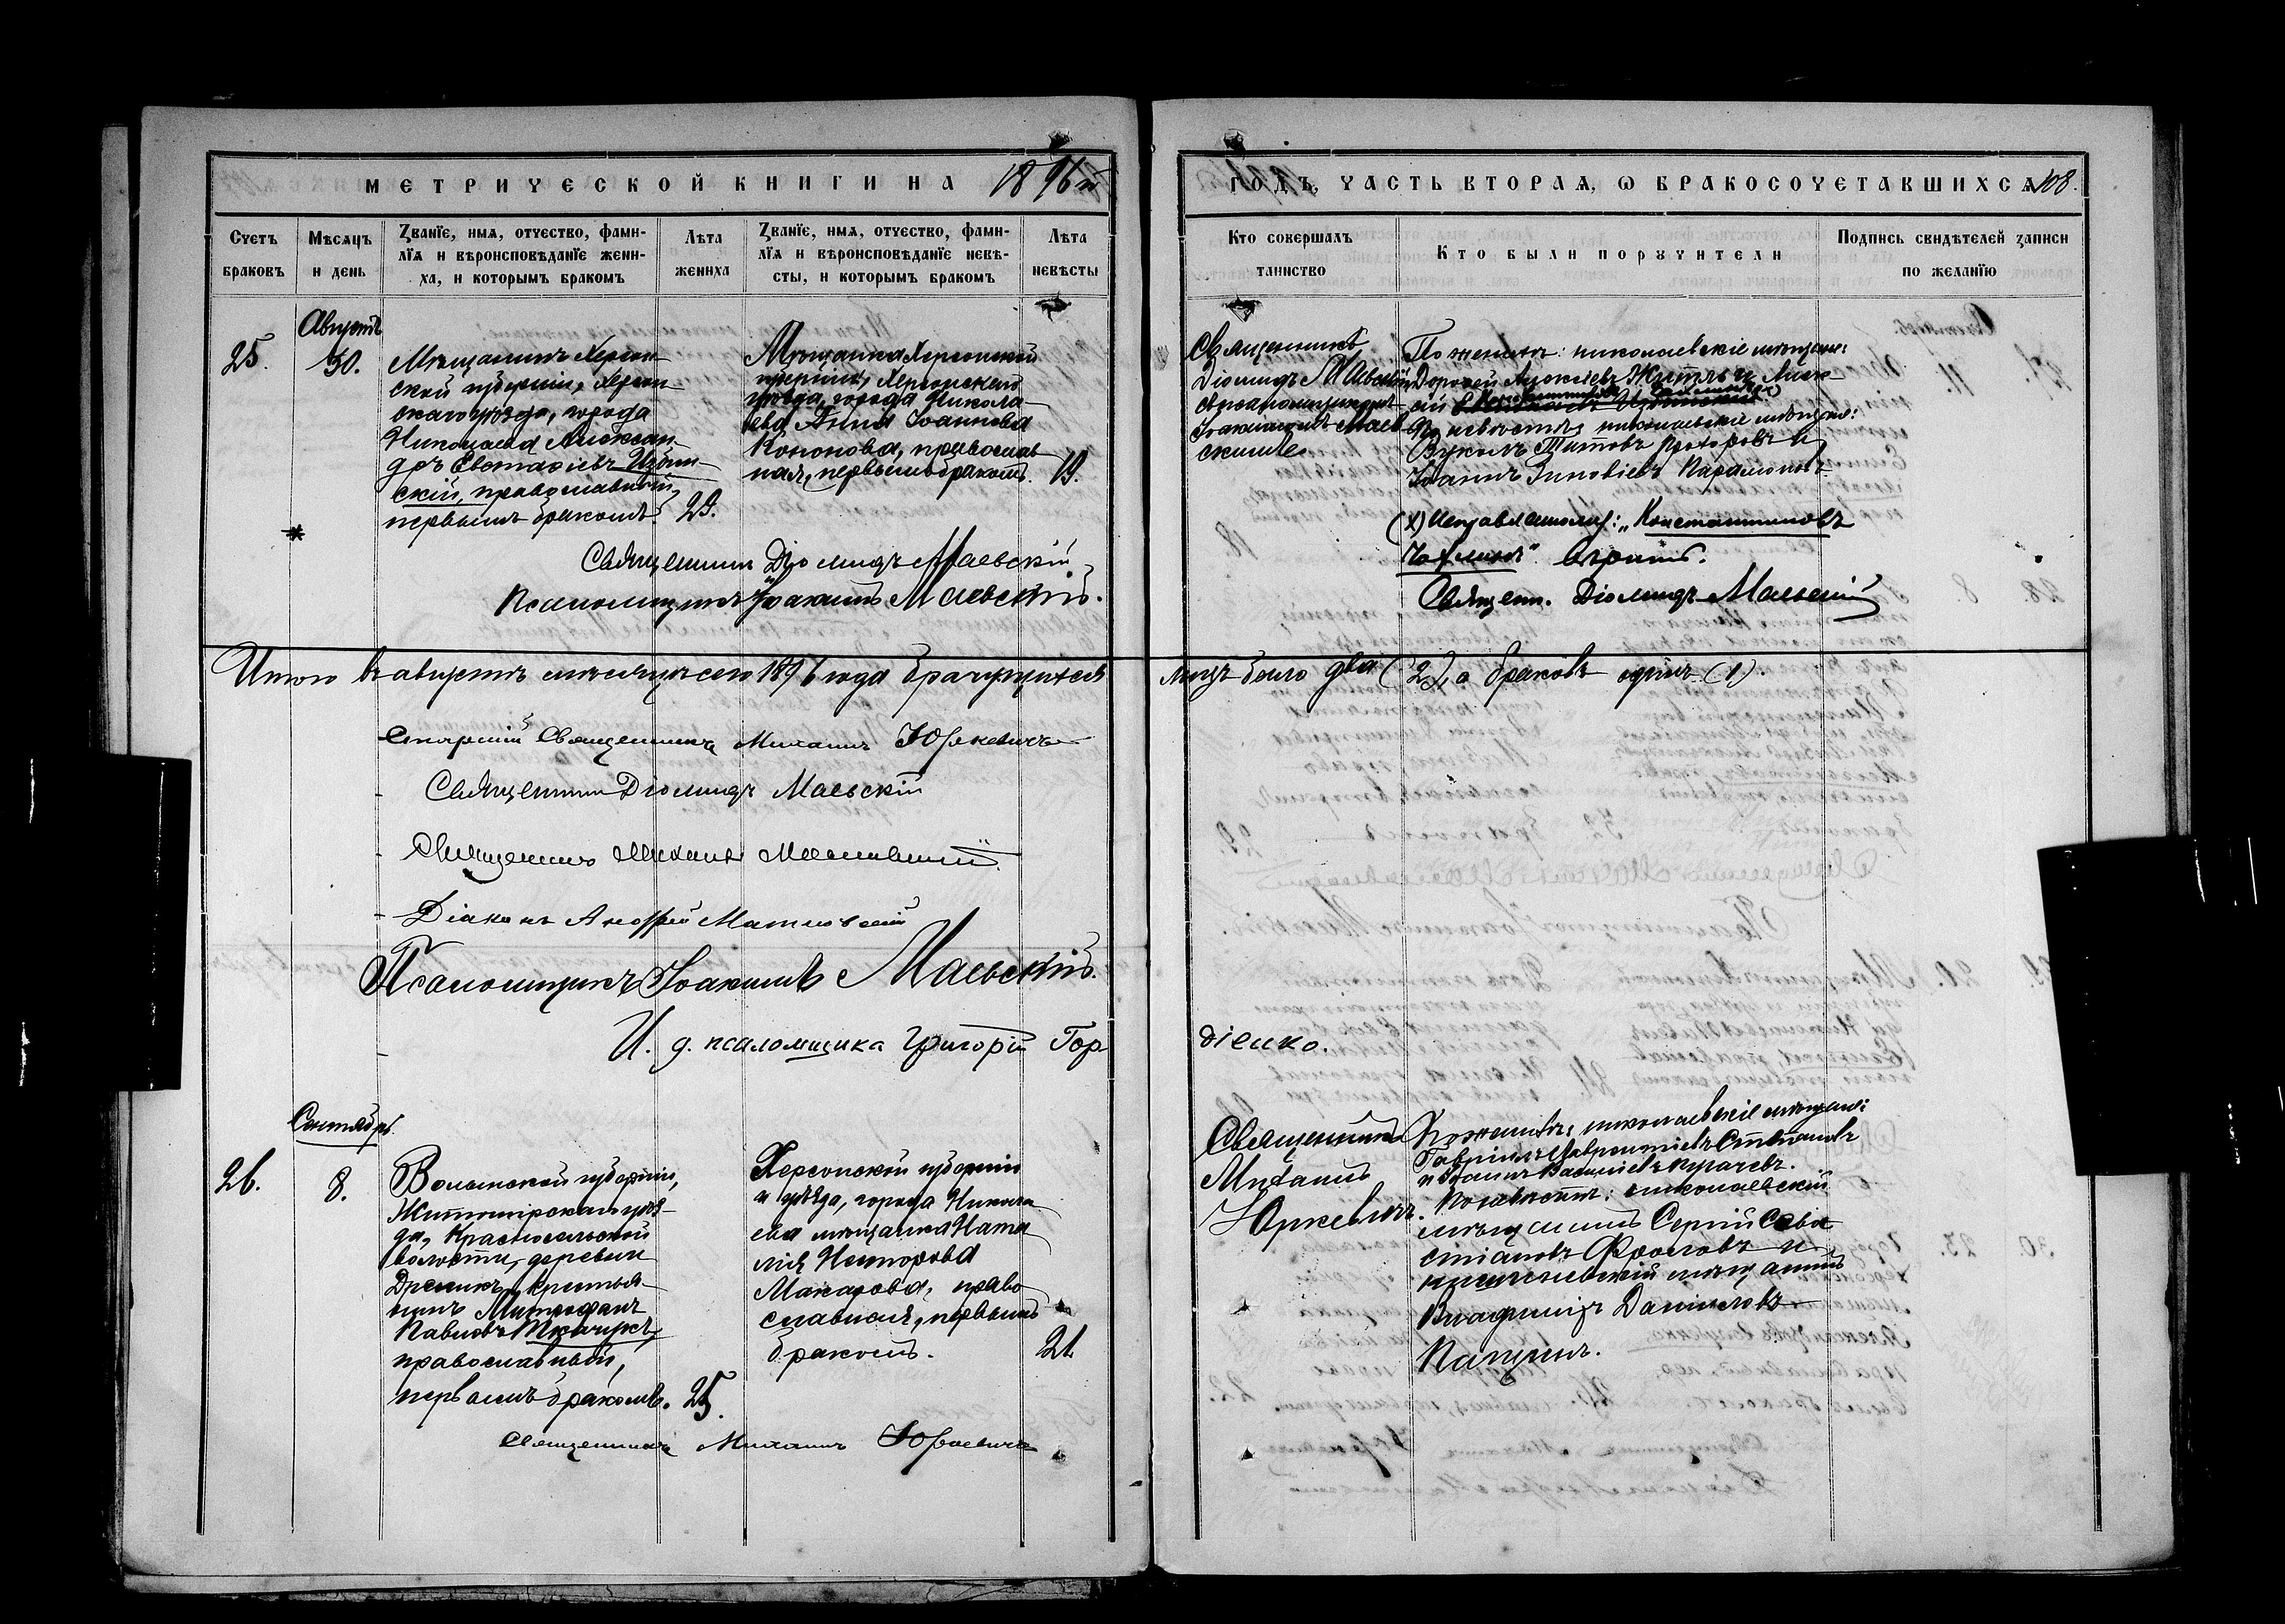 МЕТРИЧЕСКОЙ КНИГИ НА 1896 й
ГОДЪ, ЧАСТЬ ВТОРАЯ, Ѡ БРАКОСОЧЕТАВШИХСЯ 108.
Счетъ браковъ
Мѣсяцъ и день
Званїе, имя, отчество, фами-
лїя и вѣроисповѣданїе жени-
ха, и которымъ бракомъ
Лѣта жениха
Званїе, имя, отчество, фами-
лїя и вѣроисповѣданїе невѣ-
сты, и которымъ бракомъ
Лѣта невѣсты
Кто совершалъ таинство
Кто были поручители
Подпись свидѣтелей записи по желанїю
Августъ
25.
30.
Мѣщанинъ Херсон-
ской губерніи, Херсон-
скаго уѣзда, города
Николаева Алексан-
дръ Евстафіевъ
скій, православный,
первымъ бракомъ.
29.
Мѣщанка Херсонской
губерніи, Херсонскаго
уѣзда, города Никола-
ева Анна Іоаннова
Кононова, православ-
ная, первымъ бракомъ.
19.
Священникъ
Діомидъ Маевскій
съ псаломщикомъ
Іоакимомъ Маев-
скимъ
По женихѣ: николаевскіе мѣщане:
Дорофей Алексіевъ и Алек-
сій
По невѣстѣ: николаевскіе мѣщане:
Вуколъ Титовъ Прохоровъ и
Іоаннъ Зиновіевъ Парамоновъ.
(х) Исправленному: „Константиновъ
" вѣрить.
Священ. Діомидъ Маевскій
Священникъ Діомидъ Маевскій
Псаломщикъ Іоакимъ Маевскій.
Итого въ августѣ мѣсяцѣ сего 1896 года брачущихся лицъ было два (2), а браковъ одинъ (1).
Старшій Священникъ Михаилъ Юркевичъ
Священникъ Діомидъ Маевскій
Священникъ Михаилъ
Діаконъ Андрей
Псаломщикъ Іоакимъ Маевскій.
И. д. псаломщика Григорій Гор-
діенко.
Сентябрь.
26.
8.
Волынской губерніи,
Житомирскаго уѣз-
да, Красносельской
волости, деревни
Дреники, крестья-
нинъ Митрофанъ
Павловъ Ткачукъ,
православный,
первымъ бракомъ.
25.
Херсонской губерніи
и уѣзда, города Никола-
ева мѣщанка Ната-
лія Несторова
Макарова, право-
славная, первымъ
бракомъ.
21.
Священникъ
Михаилъ
Юркевичъ.
По женихѣ: николаевскіе мѣщане:
Гавріилъ Лаврентіевъ Степановъ
и Іоаннъ Василіевъ
По невѣстѣ: николаевскій
мѣщанинъ Сергій Сева-
стіановъ Фроловъ и
мѣщанинъ
Владиміръ Даниловъ
Священникъ Михаилъ Юркевичъ